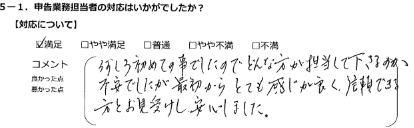 5－1．申告業務担当者の対応はいかがでしたか？
【対応について】
☑満足 □やや満足 □普通 □やや不満 □不満
コメント
良かった点
悪かった点
何しろ初めての事でしたのでどんな方が担当して下さるのか、
不安でしたが最初からとても感じが良く、信頼できる
方とお見受けし安心しました。